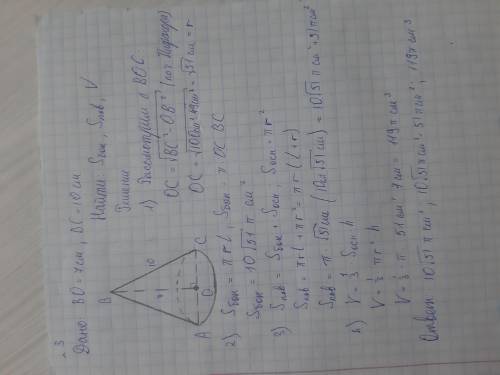 №3
Дано: BO = 7 см, BC = 10 см
Найти: Sбок, Sпов, V
Решение
1) Рассмотрим △ BOC
OC = √BC² - OB² (по т. Пифагора)
OC = √100см² - 49см² = √51 см = r
B
10
7
A
O
C
2) Sбок = πrl, Sбок = π OC BC
Sбок = 10√51 π см²
3) Sпов = Sбок + Sосн, Sосн = πr²
Sпов = πrl + πr² = πr (l + r)
Sпов = π √51 см (10см √51 см) = 10√51 π см² + 51π см²
4) V = 1/3 Sосн h
V = 1/3 πr² h
V = 1/3 π 51 см² 7 см = 119π см³
Ответ: 10√51 π см², 10√51π см² 51π см², 119π см³